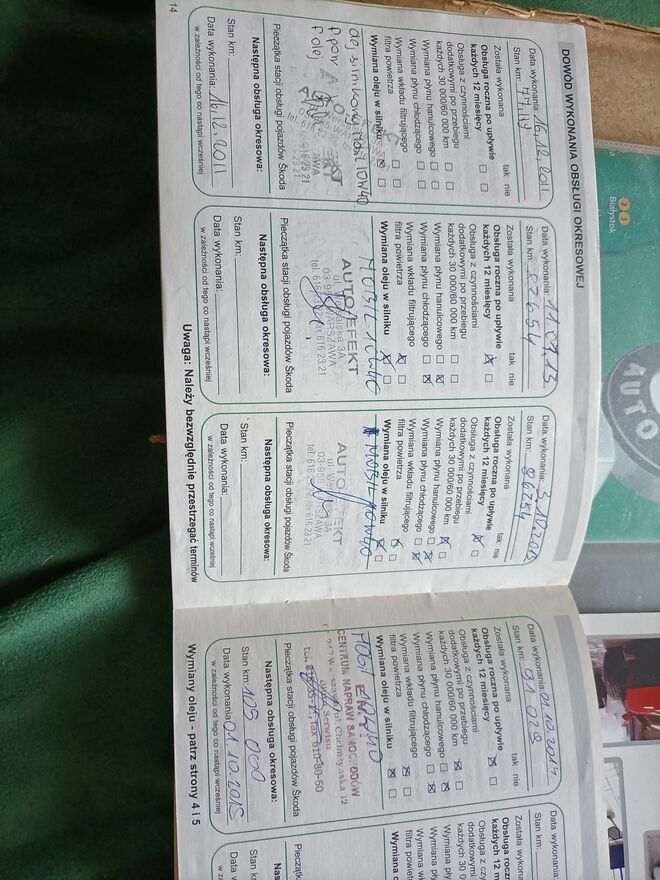 DOWÓD WYKONANIA OBSŁUGI OKRESOWEJ
Data wykonania: 16.12.2011
Stan km:
Została wykonana tak nie
Obsługa roczna po upływie
każdych 12 miesięcy
Obsługa z czynnościami
dodatkowymi po przebiegu
każdych 30 000/60 000 km
Wymiana płynu hamulcowego
Wymiana płynu chłodzącego
Wymiana wkładu filtrującego
filtra powietrza
Wymiana oleju w silniku
olej silnikowy 10W40
f. pow
f. olej
Pieczątka stacji obsługi pojazdów Škoda
Następna obsługa okresowa:
Stan km:
Data wykonania: 16.12.2011
w zależności od tego co nastąpi wcześniej
14
Data wykonania: 11.07.13
Stan km: 82654
Została wykonana tak nie
Obsługa roczna po upływie
każdych 12 miesięcy
Obsługa z czynnościami
dodatkowymi po przebiegu
każdych 30 000/60 000 km
Wymiana płynu hamulcowego
Wymiana płynu chłodzącego
Wymiana wkładu filtrującego
filtra powietrza
Wymiana oleju w silniku
MOBIL 10W40
AUTO EFEKT
WARSZAWA
Pieczątka stacji obsługi pojazdów Škoda
Następna obsługa okresowa:
Stan km:
Data wykonania:
w zależności od tego co nastąpi wcześniej
Data wykonania: 3.10.2013
Stan km: 86754
Została wykonana tak nie
Obsługa roczna po upływie
każdych 12 miesięcy
Obsługa z czynnościami
dodatkowymi po przebiegu
każdych 30 000/60 000 km
Wymiana płynu hamulcowego
Wymiana płynu chłodzącego
Wymiana wkładu filtrującego
filtra powietrza
Wymiana oleju w silniku
MOBIL 10W40
Pieczątka stacji obsługi pojazdów Škoda
Następna obsługa okresowa:
Stan km:
Data wykonania:
w zależności od tego co nastąpi wcześniej
Uwaga: Należy bezwzględnie przestrzegać terminów
Data wykonania: 01.10.2014
Stan km: 91 028
Została wykonana tak nie
Obsługa roczna po upływie
każdych 12 miesięcy
Obsługa z czynnościami
dodatkowymi po przebiegu
każdych 30 000/60 000 km
Wymiana płynu hamulcowego
Wymiana płynu chłodzącego
Wymiana wkładu filtrującego
filtra powietrza
Wymiana oleju w silniku
10W40
CENTRUM NAPRAW SAMOCHODÓW
Pieczątka stacji obsługi pojazdów Škoda
Następna obsługa okresowa:
Stan km: 105 000
Data wykonania: 01.10.2015
w zależności od tego co nastąpi wcześniej
Wymiany oleju - patrz strony 4 i 5
Data wykonania:
Stan km:
Została wykonana
Białystok
AUTO